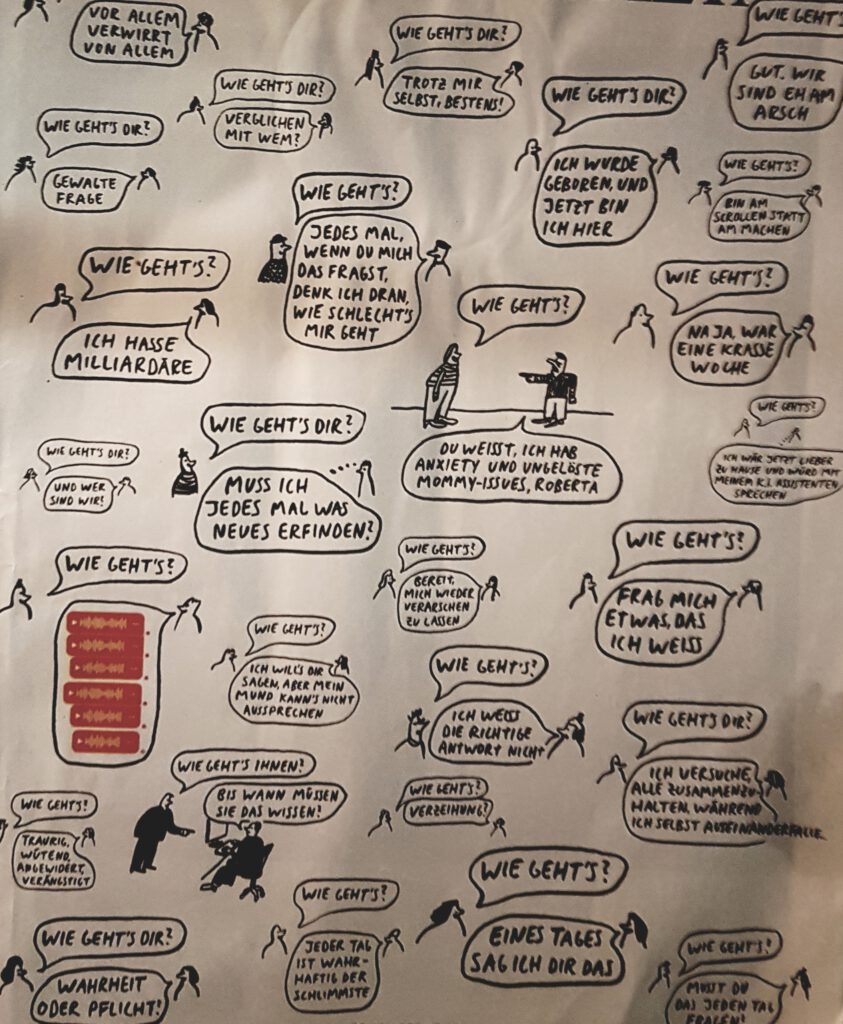 VOR ALLEM
VERWIRRT
VON ALLEM
WIE GEHT'S DIR?
TROTZ MIR
SELBST, BESTENS!
WIE GEHT'S
GUT. WIR
SIND EH AM
ARSCH
WIE GEHT'S DIR?
VERGLICHEN
MIT WEM?
WIE GEHT'S DIR?
ICH WURDE
GEBOREN, UND
JETZT BIN
ICH HIER
WIE GEHT'S DIR?
GEWAGTE
FRAGE
WIE GEHT'S?
BIN AM
SCROLLEN STATT
AM MACHEN
WIE GEHT'S?
JEDES MAL,
WENN DU MICH
DAS FRAGST,
DENK ICH DRAN,
WIE SCHLECHT'S
MIR GEHT
WIE GEHT'S?
ICH HASSE
MILLIARDÄRE
WIE GEHT'S?
NA JA, WAR
EINE KRASSE
WOCHE
WIE GEHT'S?
DU WEISST, ICH HAB
ANXIETY UND UNGELÖSTE
MOMMY-ISSUES, ROBERTA
WIE GEHT'S?
ICH WÄR JETZT LIEBER
ZU HAUSE UND WÜRD MIT
MEINEM K.I. ASSISTENTEN
SPRECHEN
WIE GEHT'S DIR?
MUSS ICH
JEDES MAL WAS
NEUES ERFINDEN?
WIE GEHT'S DIR?
UND WER
SIND WIR?
WIE GEHT'S?
WIE GEHT'S?
BEREIT,
MICH WIEDER
VERARSCHEN
ZU LASSEN
WIE GEHT'S?
FRAG MICH
ETWAS, DAS
ICH WEISS
WIE GEHT'S?
ICH WILL'S DIR
SAGEN, ABER MEIN
MUND KANN'S NICHT
AUSSPRECHEN
WIE GEHT'S?
ICH WEISS
DIE RICHTIGE
ANTWORT NICHT
WIE GEHT'S DIR?
ICH VERSUCHE,
ALLE ZUSAMMENZU-
HALTEN, WÄHREND
ICH SELBST AUSEINANDERFALLE
WIE GEHT'S IHNEN?
BIS WANN MÜSSEN
SIE DAS WISSEN?
WIE GEHT'S?
VERZEIHUNG?
WIE GEHT'S?
TRAURIG,
WÜTEND,
ANGEWIDERT,
VERÄNGSTIGT
WIE GEHT'S?
EINES TAGES
SAG ICH DIR DAS
WIE GEHT'S?
JEDER TAG
IST WAHR-
HAFTIG DER
SCHLIMMSTE
WIE GEHT'S DIR?
WAHRHEIT
ODER PFLICHT?
WIE GEHT'S?
MUSST DU
DAS JEDEN TAG
FRAGEN?